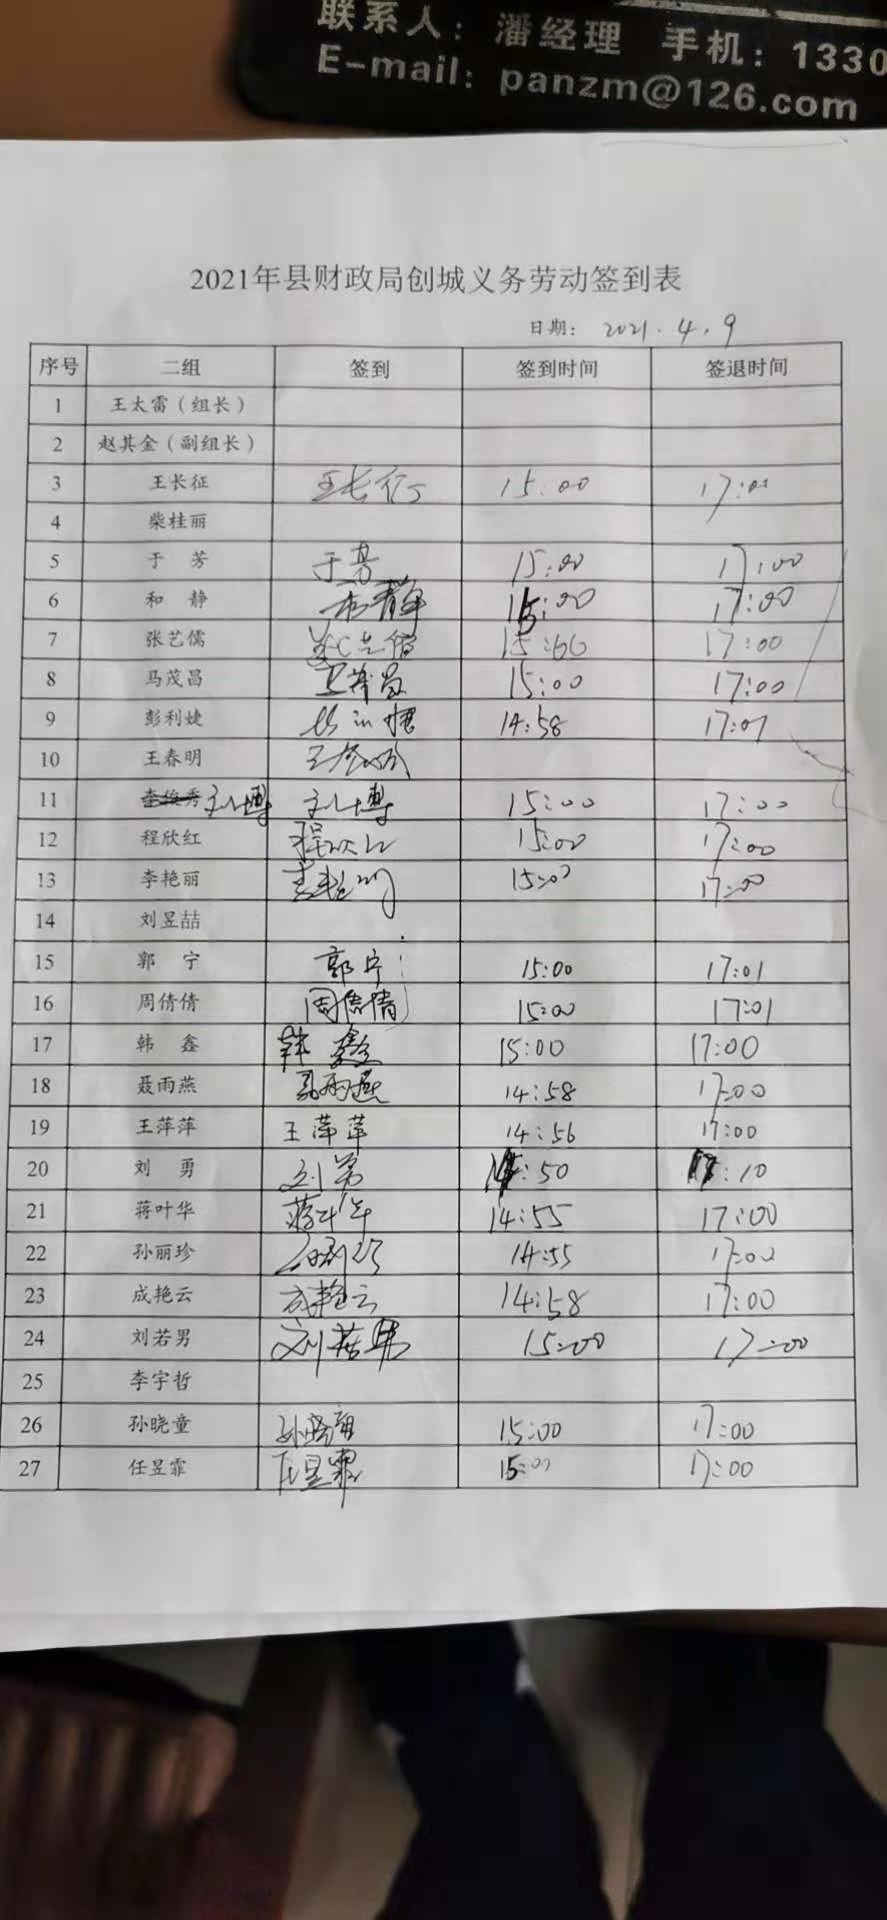 联系人：潘经理 手机：1330
E-mail: panzm@126.com
2021年县财政局创城义务劳动签到表
日期： 2021.4.9
序号 二组 签到 签到时间 签退时间
1 王太雷（组长）
2 赵其金（副组长）
3 王长征 王长征 15:00 17:01
4 柴桂丽
5 于 芳 于芳 15:00 17:00
6 和 静 和静 15:00 17:00
7 张艺儒 张艺儒 15:00 17:00
8 马茂昌 马茂昌 15:00 17:00
9 彭利婕 14:58 17:01
10 王春明 王春明
11 李俊秀 15:00 17:00
12 程欣红 程欣红 15:00 17:00
13 李艳丽 李艳丽 15:00 17:00
14 刘昱喆
15 郭 宁 郭宁 15:00 17:01
16 周倩倩 周倩倩 15:00 17:01
17 韩 鑫 韩鑫 15:00 17:00
18 聂雨燕 聂雨燕 14:58 17:00
19 王萍萍 王萍萍 14:56 17:00
20 刘 勇 刘勇 14:50 17:10
21 蒋叶华 蒋叶华 14:55 17:00
22 孙丽珍 孙丽珍 14:55 17:00
23 成艳云 成艳云 14:58 17:00
24 刘若男 刘若男 15:00 17:00
25 李宇哲
26 孙晓童 孙晓童 15:00 17:00
27 任昱霏 任昱霏 15:00 17:00